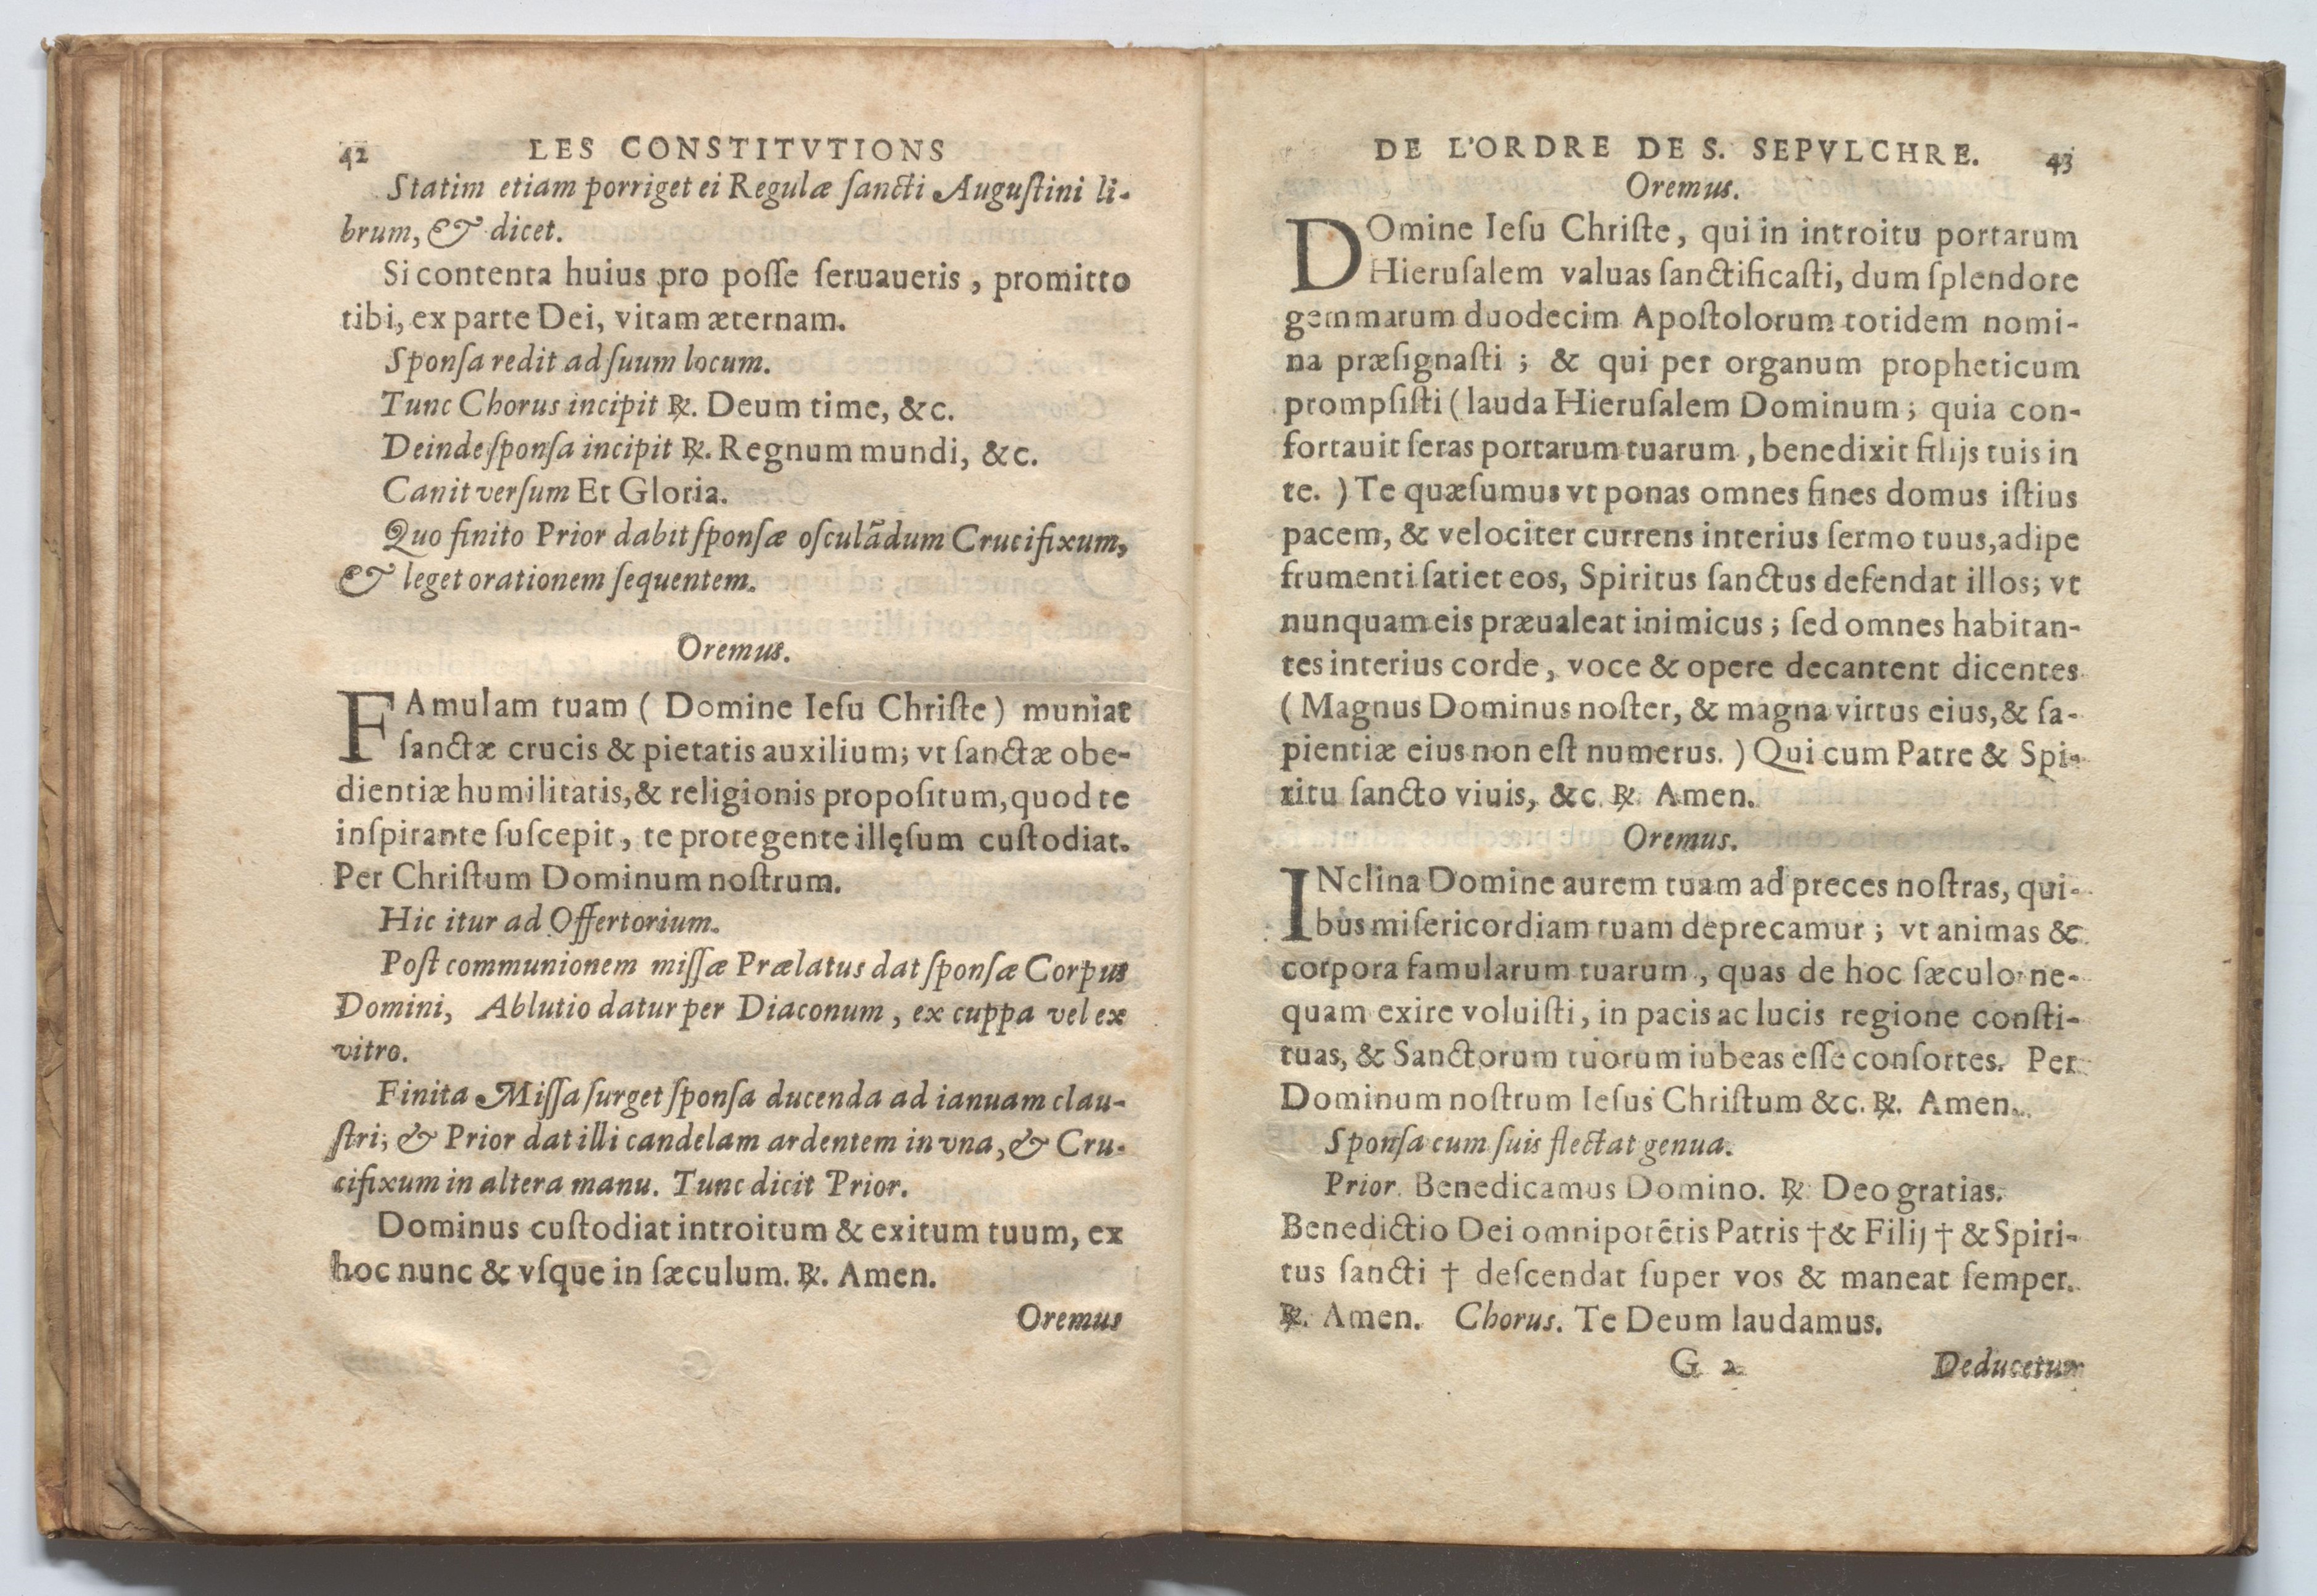 42 LES CONSTITVTIONS
Statim etiam porriget ei Regulæ ſancti Auguſtini li-
brum, & dicet.
Si contenta huius pro poſſe ſeruaueris, promitto
tibi, ex parte Dei, vitam æternam.
Sponſa redit ad ſuum locum.
Tunc Chorus incipit ℟. Deum time, &c.
Deinde ſponſa incipit ℟. Regnum mundi, &c.
Canit verſum Et Gloria.
Quo finito Prior dabit ſponſæ oſculãdum Crucifixum,
& leget orationem ſequentem.
Oremus.
FAmulam tuam ( Domine Ieſu Chriſte) muniat
ſanctæ crucis & pietatis auxilium; vt ſanctæ obe-
dientiæ humilitatis, & religionis propoſitum, quod te
inſpirante ſuſcepit, te protegente illęſum cuſtodiat.
Per Chriſtum Dominum noſtrum.
Hic itur ad Offertorium.
Poſt communionem miſſæ Prælatus dat ſponſæ Corpus
Domini, Ablutio datur per Diaconum, ex cuppa vel ex
vitro.
Finita Miſſa ſurget ſponſa ducenda ad ianuam clau-
ſtri; & Prior dat illi candelam ardentem in vna, & Cru-
cifixum in altera manu. Tunc dicit Prior.
Dominus cuſtodiat introitum & exitum tuum, ex
hoc nunc & vſque in ſæculum. ℟. Amen.
Oremus
DE L'ORDRE DE S. SEPVLCHRE. 43
Oremus.
DOmine Ieſu Chriſte, qui in introitu portarum
Hieruſalem valuas ſanctificaſti, dum ſplendore
gemmarum duodecim Apoſtolorum totidem nomi-
na præſignaſti ; & qui per organum propheticum
prompſiſti ( lauda Hieruſalem Dominum ; quia con-
fortauit ſeras portarum tuarum, benedixit filijs tuis in
te. ) Te quæſumus vt ponas omnes fines domus iſtius
pacem, & velociter currens interius ſermo tuus, adipe
frumenti ſatiet eos, Spiritus ſanctus defendat illos; vt
nunquam eis præualeat inimicus ; ſed omnes habitan-
tes interius corde, voce & opere decantent dicentes
( Magnus Dominus noſter, & magna virtus eius, & ſa-
pientiæ eius non eſt numerus. ) Qui cum Patre & Spi-
ritu ſancto viuis, &c. ℟. Amen.
Oremus.
INclina Domine aurem tuam ad preces noſtras, qui-
bus miſericordiam tuam deprecamur ; vt animas &
corpora famularum tuarum, quas de hoc ſæculo ne-
quam exire voluiſti, in pacis ac lucis regione conſti-
tuas, & Sanctorum tuorum iubeas eſſe conſortes. Per
Dominum noſtrum Ieſus Chriſtum &c. ℟. Amen.
Sponſa cum ſuis flectat genua.
Prior. Benedicamus Domino. ℟. Deo gratias.
Benedictio Dei omnipotẽtis Patris † & Filij † & Spiri-
tus ſancti † deſcendat ſuper vos & maneat ſemper.
℟. Amen. Chorus. Te Deum laudamus.
G 2 Deducetur